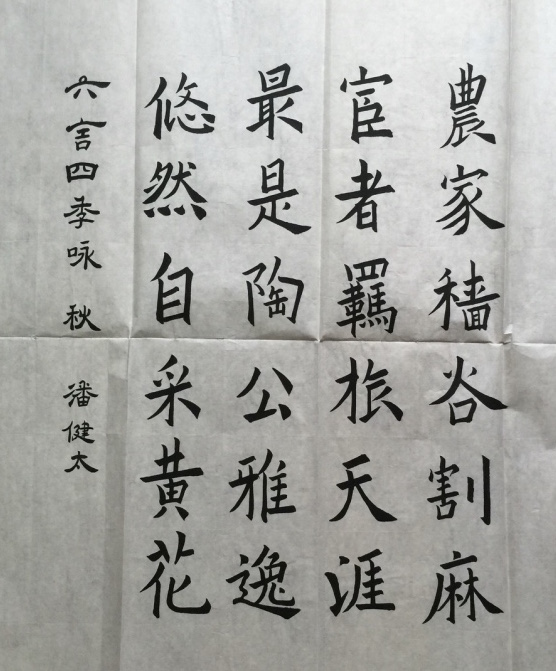 農家穑谷割麻
宦者羈旅天涯
最是陶公雅逸
悠然自采黄花
六言四季咏 秋 潘健太